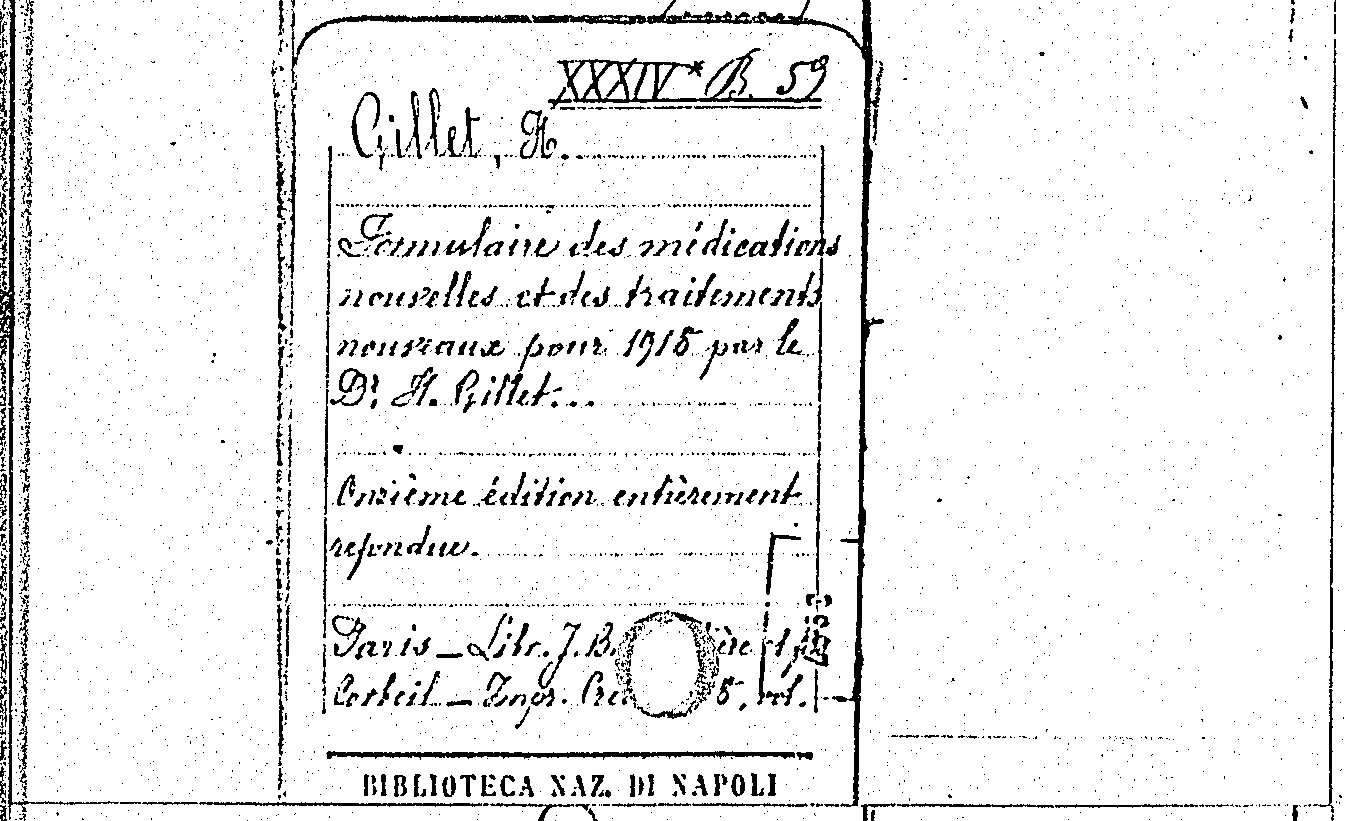 XXXIV * B. 59
Gillet, H.
Formulaire des médications
nouvelles et des traitements
nouveaux pour 1915 par le
Dr. H. Gillet...
Onzième édition entièrement
refondue.
Paris _ Libr. J. B. et
Corbeil _ Impr. 5, vol.
BIBLIOTECA NAZ. DI NAPOLI